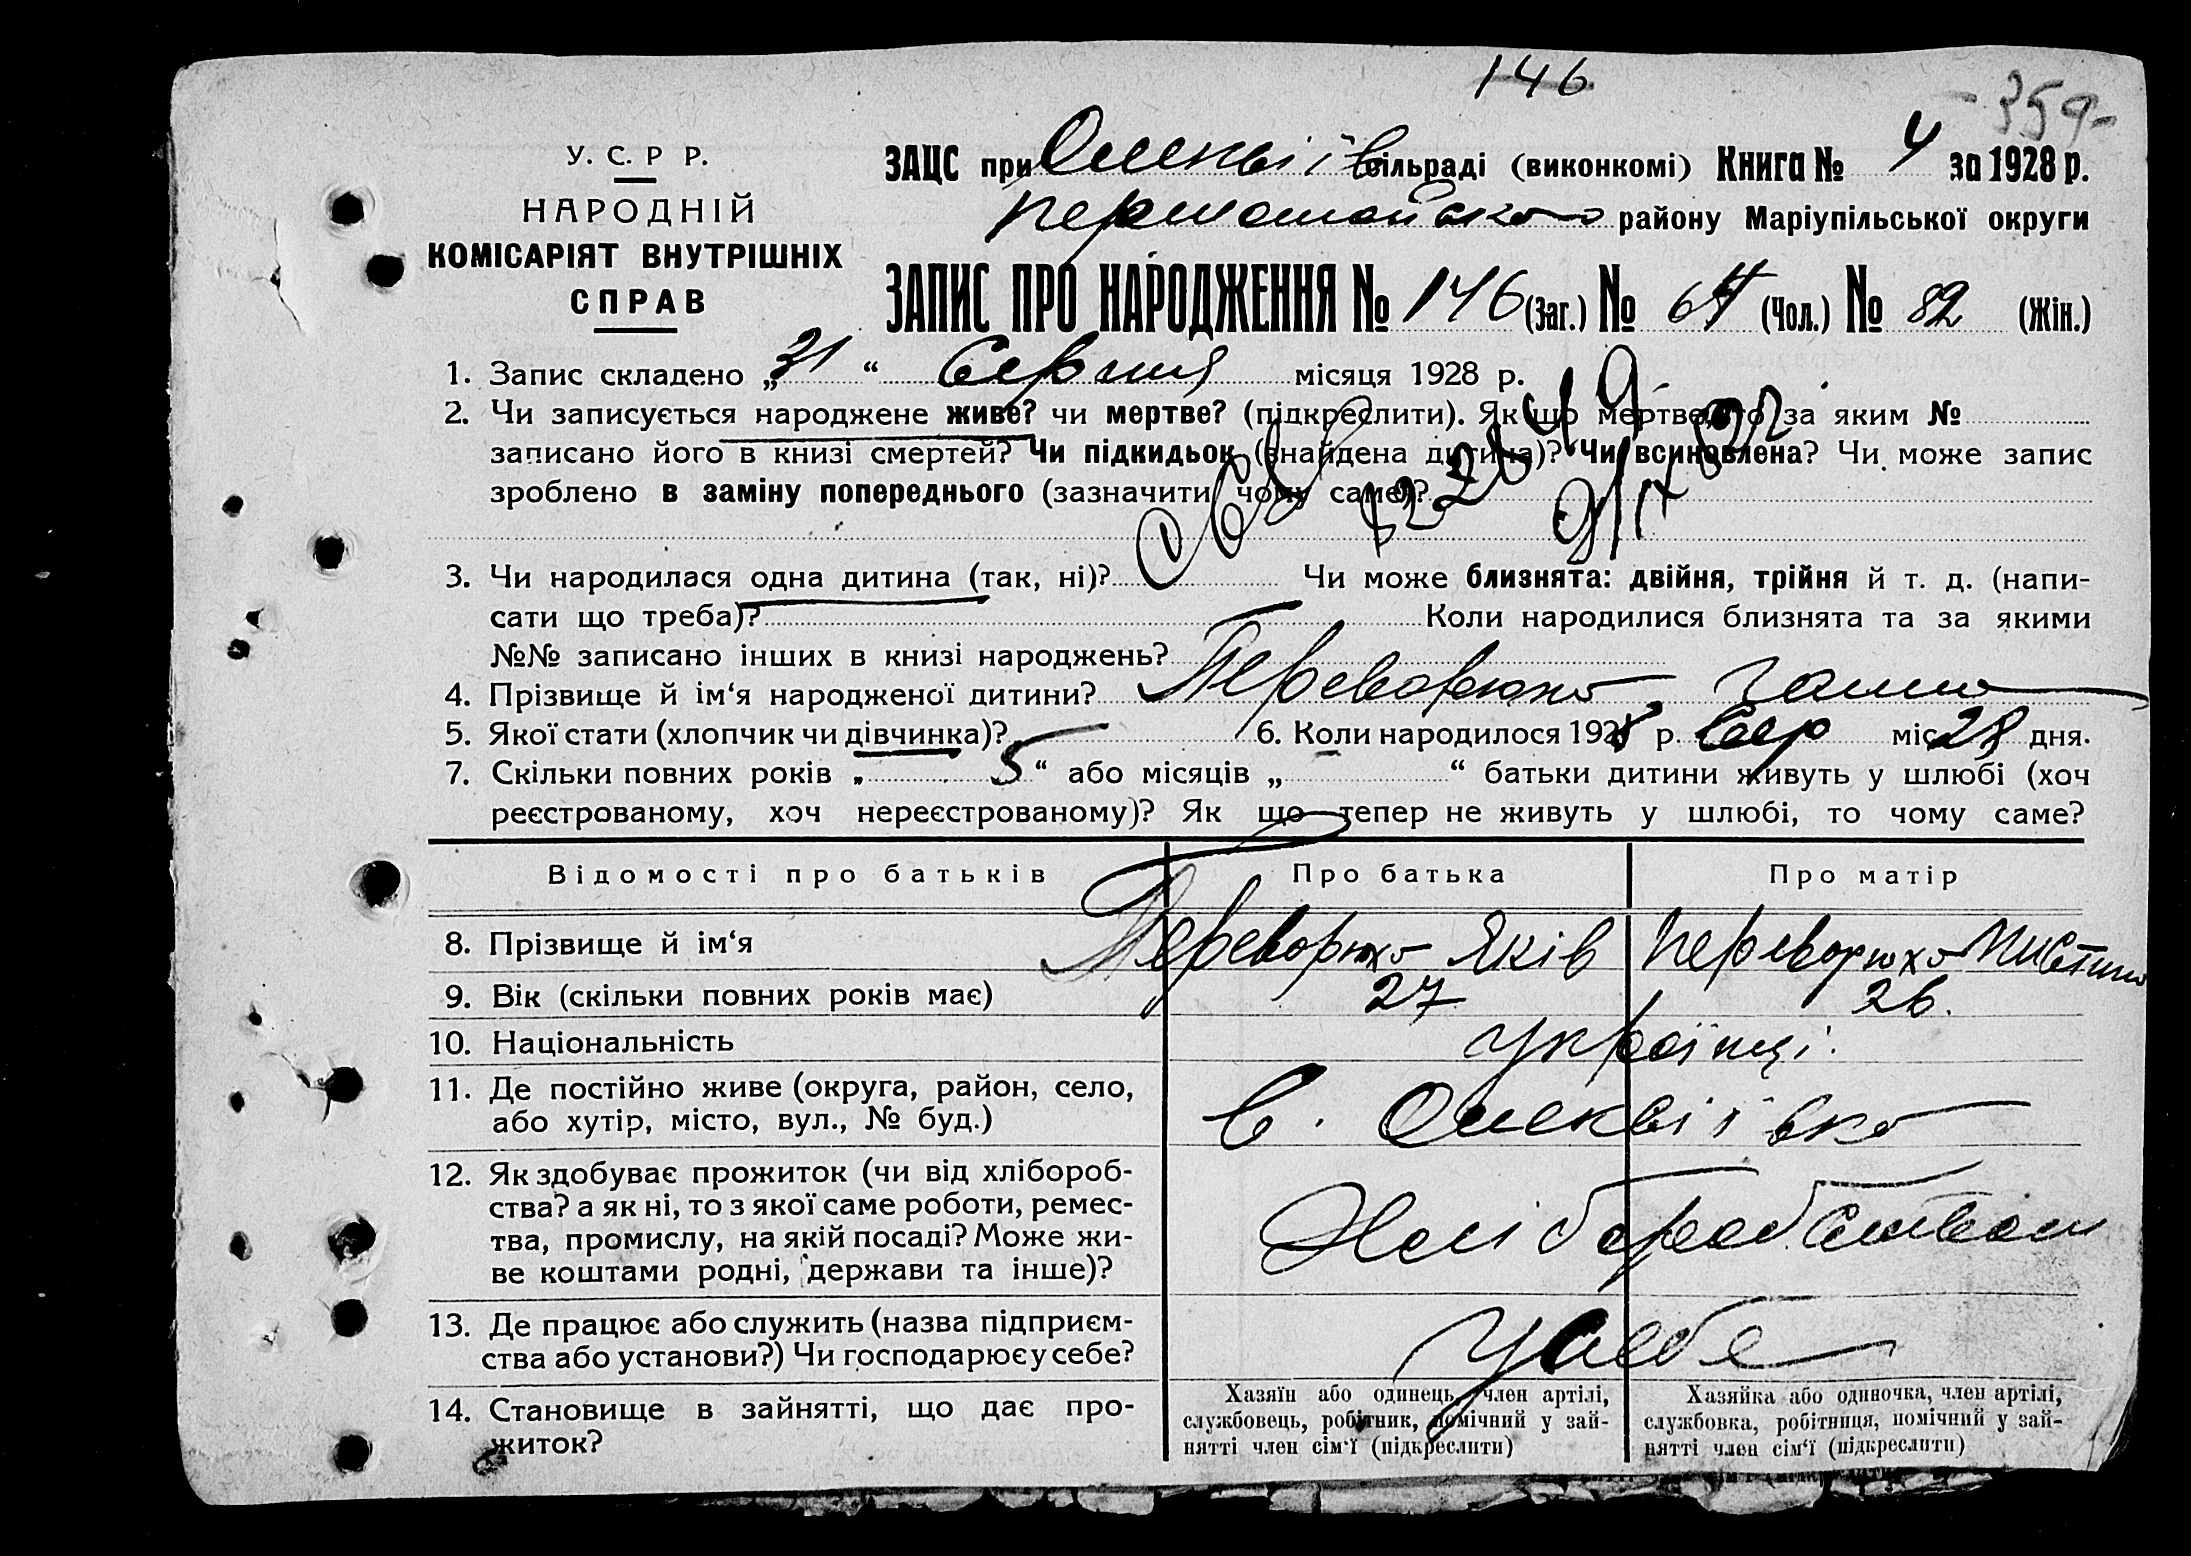 146
359-
У. С. Р Р.
НАРОДНІЙ
КОМІСАРІЯТ ВНУТРІШНІХ
СПРАВ
ЗАЦС при сільраді (виконкомі) Книга № 4 за 1928 р.
першомайсько району Маріупільської округи
ЗАПИС ПРО НАРОДЖЕННЯ № 146 (Заг.) № 64 (Чол.) № 82 (Жін.)
1. Запис складено „31“ Серпня місяця 1928 р.
2. Чи записується народжене живе? чи мертве? (підкреслити). Як що мертве, то за яким №
записано його в книзі смертей? Чи підкидьок (знайдена дитина)? Чи всиновлена? Чи може запис
зроблено в заміну попереднього (зазначити чому саме)?
3. Чи народилася одна дитина (так, ні)? Чи може близнята: двійня, трійня й т. д. (напи-
сати що треба)? Коли народилися близнята та за якими
№№ записано інших в книзі народжень?
4. Прізвище й ім‘я народженої дитини? Переворюхо
5. Якої стати (хлопчик чи дівчинка)? 6. Коли народилося 1928 р. Сер міс 28 дня.
7. Скільки повних років „ 5 “ або місяців „ “ батьки дитини живуть у шлюбі (хоч
реєстрованому, хоч нереєстрованому)? Як що тепер не живуть у шлюбі, то чому саме?
Відомості про батьків Про батька Про матір
8. Прізвище й ім‘я Переворюхо Яків Переворюхо
9. Вік (скільки повних років має) 27 26.
10. Національність українці.
11. Де постійно живе (округа, район, село,
або хутір, місто, вул., № буд.)
с.
12. Як здобуває прожиток (чи від хлібороб-
ства? а як ні, то з якої саме роботи, ремес-
тва, промислу, на якій посаді? Може жи-
ве коштами родні, держави та інше)?
Хліборобством
13. Де працює або служить (назва підприєм-
ства або установи?) Чи господарює у себе?
у себе
14. Становище в зайнятті, що дає про-
житок?
Хазяїн або одинець, член артілі,
службовець, робітник, помічний у зай-
нятті член сім‘ї (підкреслити)
Хазяйка або одиночка, член артілі,
службовка, робітниця, помічний у зай-
нятті член сім‘ї (підкреслити)